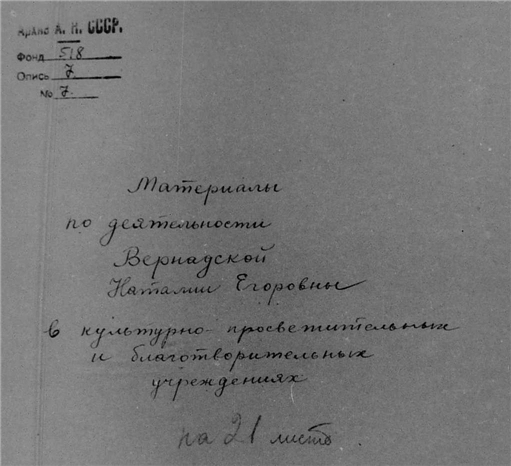 Архив А. Н. СССР.
Фонд 518
Опись 7
№ 7
Материалы
по деятельности
Вернадской
Наталии Егоровны
в культурно-просветительных
и благотворительных
учреждениях
на 21 листе